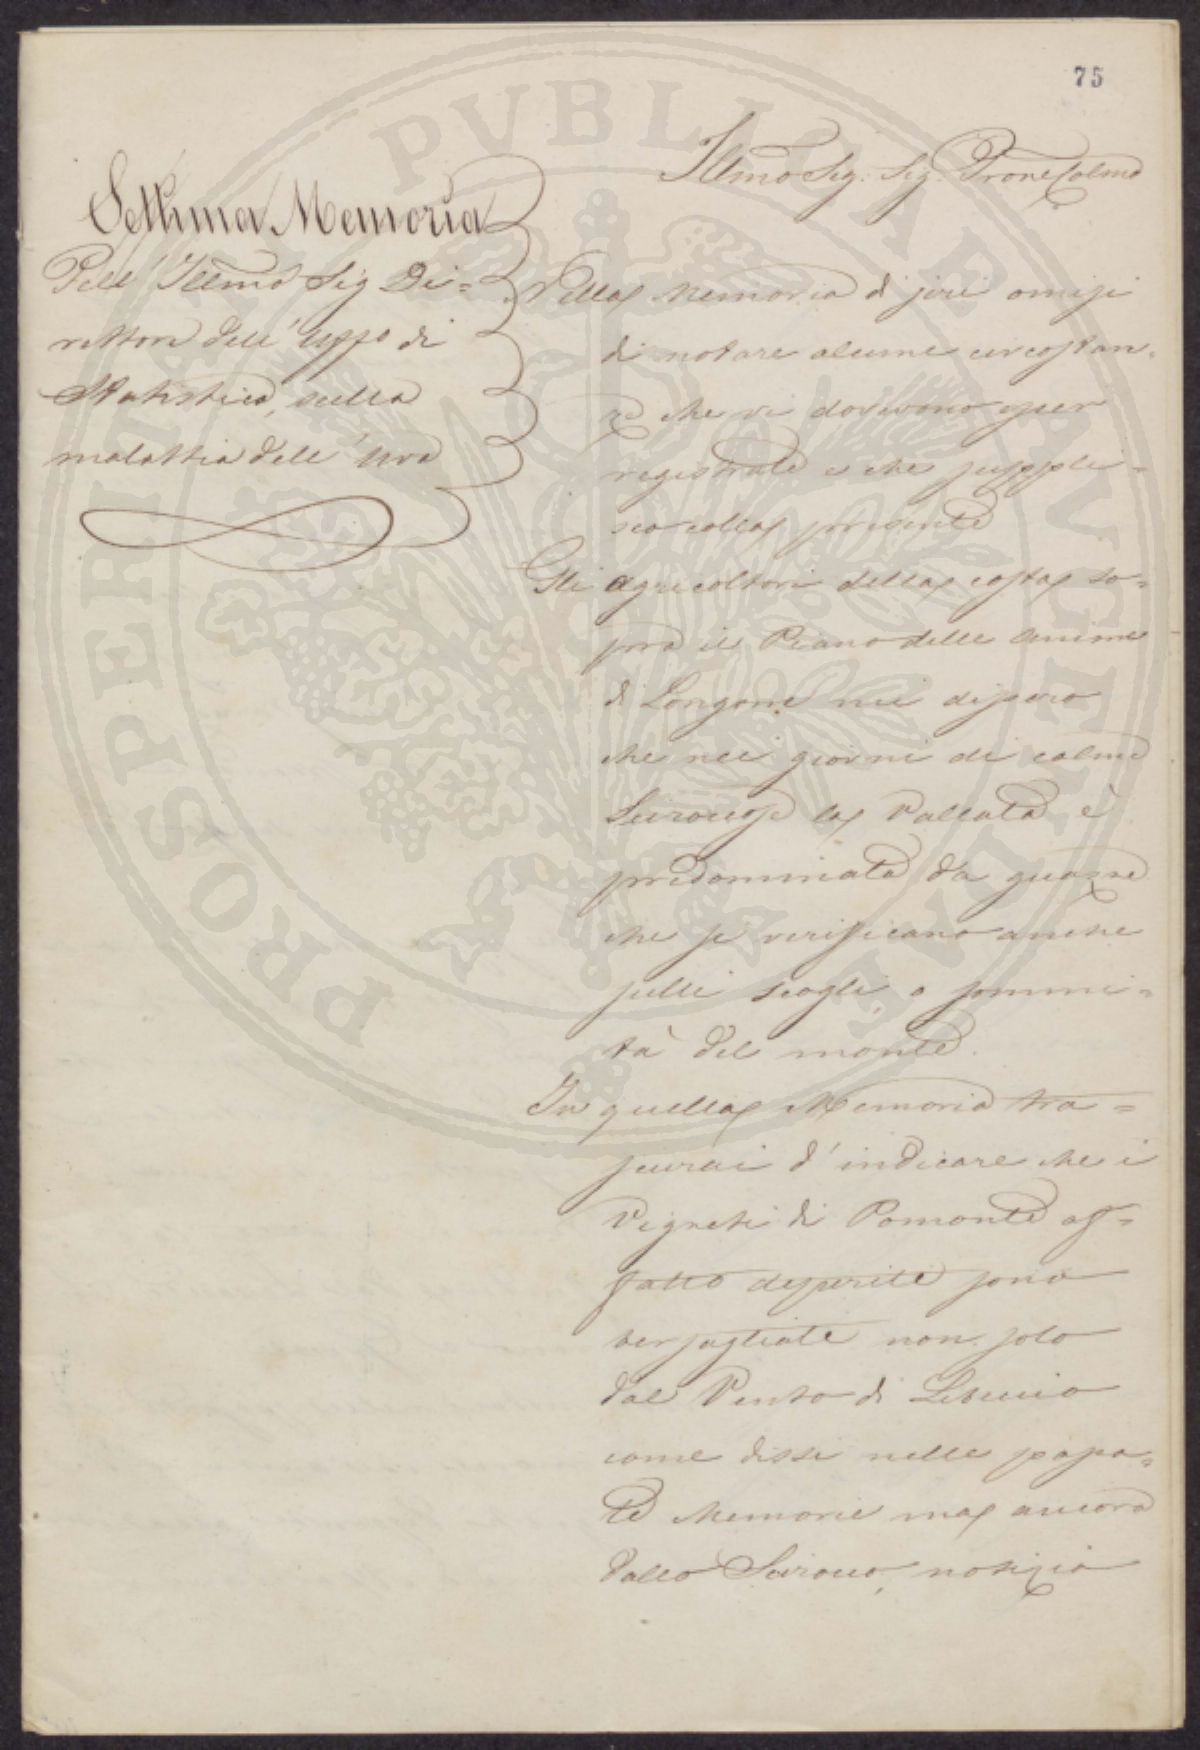 75
Illmo Sig. Sig. Prone Colmo
Settima Memoria
Pell' Illmo Sig Di=
rettore dell' Uffo di
Statistica, sulla
malattia dell' Uva
Nella Memoria di jeri omisi
di notare alcune circostan=
ze che vi dovevano esser
registrate e che suppli=
sco colla presente
Gli agricoltori della costa so=
pra il Piano delle
di Longone mi dissero
che nei giorni di calma
Sciroccosa la Vallata è
predominata da guazze
che si verificano anche
sulli scogli o sommi=
tà del monte.
In quella Memoria tra=
scurai d'indicare che i
Vigneti di Pomonte af=
fatto deperite sono
bersagliate non solo
dal Vento di Libeccio
come dissi nelle passa=
te Memorie ma ancora
dallo Scirocco, notizia
PROSPERITATI PVBLICAE AVGENDAE